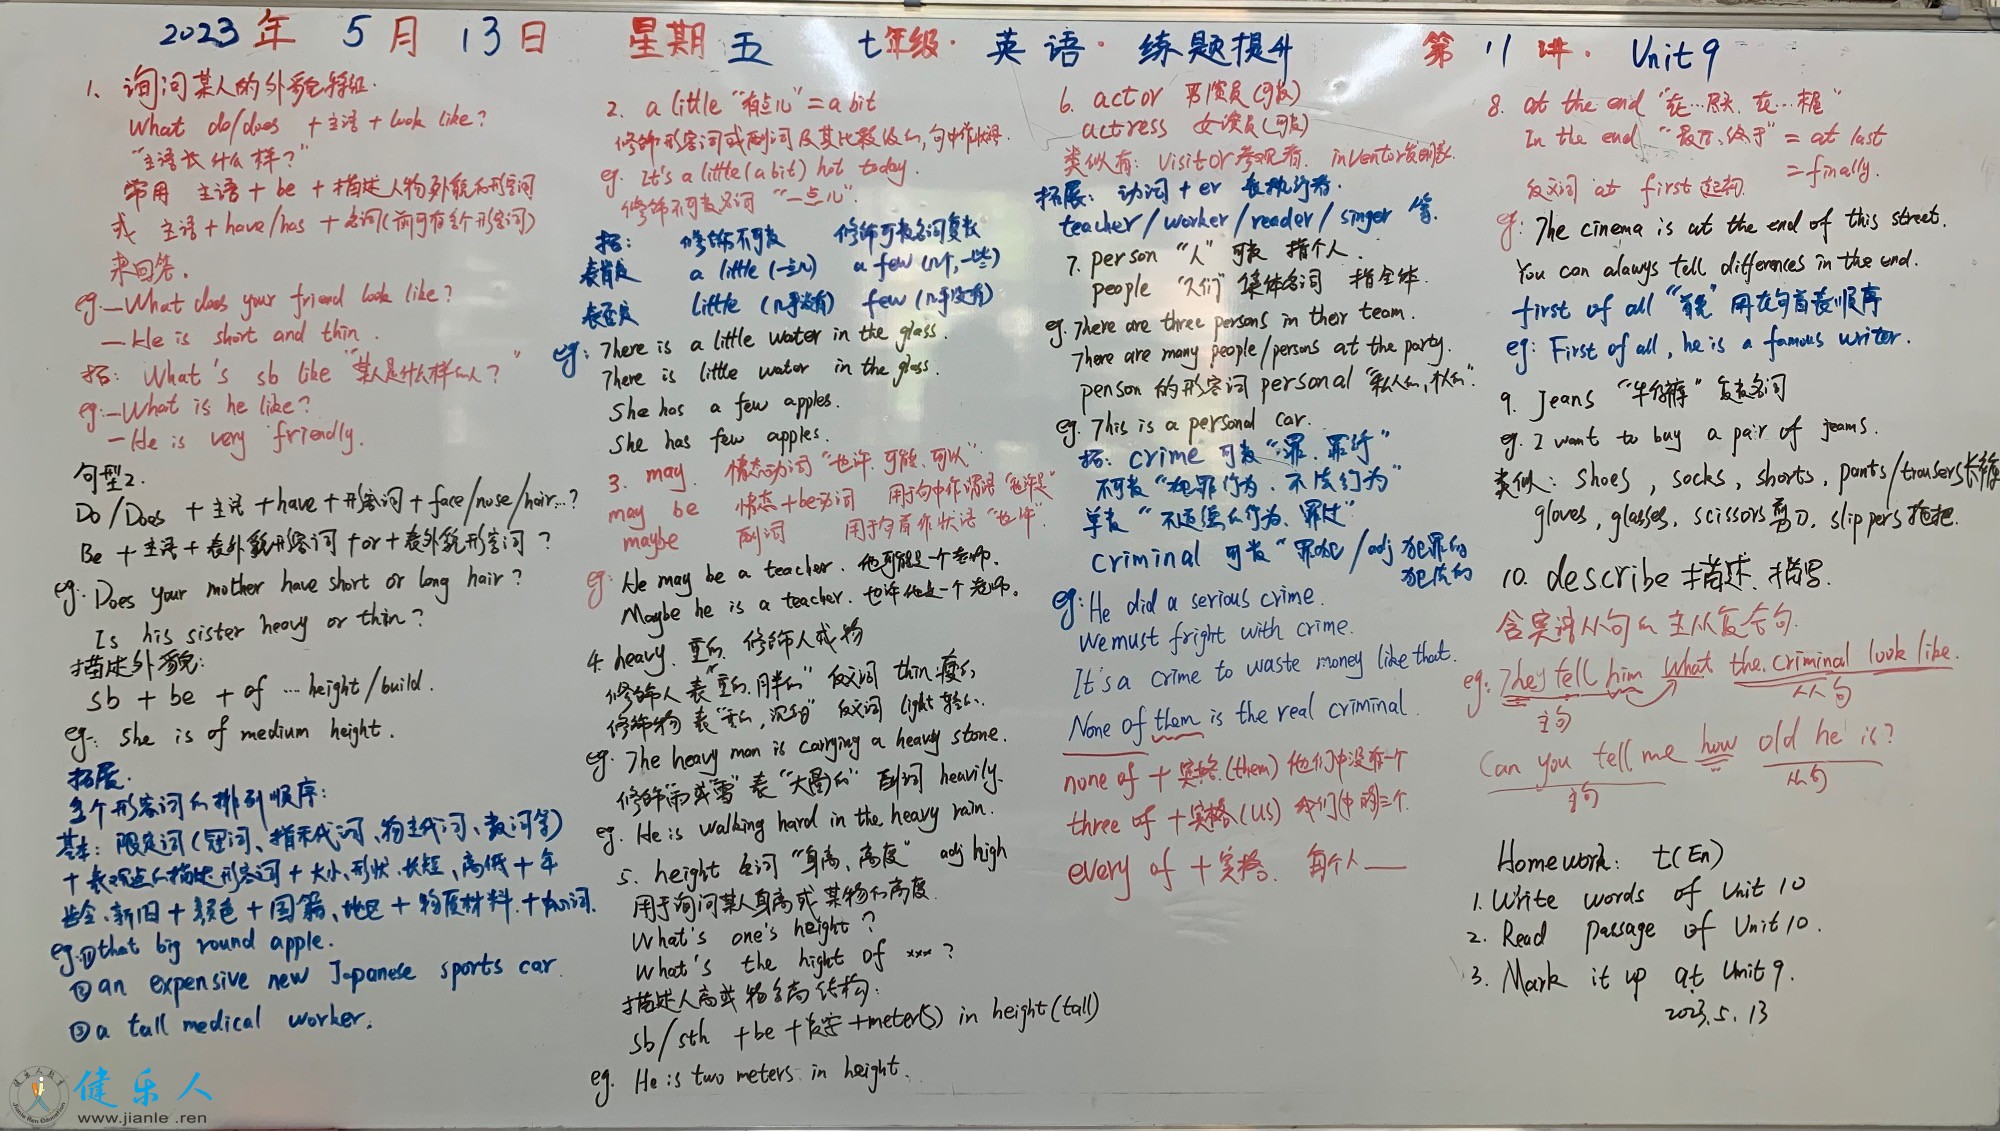 2023年 5月 13日 星期五 七年级·英语·练题提升 第11讲· Unit 9
1、询问某人的外貌特征.
What do/does +主语+look like?
"主语长什么样?"
常用 主语+be+描述人物外貌的形容词
或 主语+have/has+名词(前可有多个形容词)
来回答。
eg:—What does your friend look like?
—He is short and thin.
拓: What's sb like "某人是什么样的人?"
eg:—What is he like?
—He is very friendly.
句型2.
Do/Does +主语+have+形容词+face/nose/hair...?
Be+主语+表外貌形容词+or+表外貌形容词?
eg: Does your mother have short or long hair?
Is his sister heavy or thin?
描述外貌:
sb + be + of … height/build.
eg: She is of medium height.
拓展.
多个形容词的排列顺序:
基本: 限定词(冠词、指示代词、物主代词、数词等)
+表观点的描述形容词+大小、形状、长短、高低+年
龄、新旧+颜色+国籍、地区+物质材料+中心词.
eg:①that big round apple.
②an expensive new Japanese sports car.
③a tall medical worker.
2. a little "有点儿"=a bit
修饰形容词或副词及其比较级的,句中作状语.
eg. It's a little(a bit) hot today.
修饰不可数名词 "一点儿".
拓: 修饰不可数 修饰可数名词复数
表肯定 a little(一点儿) a few(几个,一些)
表否定 little(几乎没有) few(几乎没有)
eg: There is a little water in the glass.
There is little water in the glass.
She has a few apples.
She has few apples.
3. may 情态动词"也许、可能、可以".
may be 情态+be动词 用于句中作谓语"也许是"
maybe 副词 用于句首作状语"也许".
eg: He may be a teacher. 他可能是一个老师.
Maybe he is a teacher. 也许他是一个老师。
4. heavy. 重的 修饰人或物
修饰人 表"重的,胖的" 反义词 thin 瘦的
修饰物 表"重的,沉的" 反义词 light 轻的.
eg. The heavy man is carrying a heavy stone.
修饰"雨或雪"表"大量的" 副词 heavily.
eg. He is walking hard in the heavy rain.
5. height 名词 "身高、高度" adj high
用于询问某人身高或某物的高度.
What's one's height?
What's the hight of xxx?
描述人高或物多高结构:
sb/sth +be+数字+meter(s) in height(tall)
eg. He is two meters in height.
6. actor 男演员(可数)
actress 女演员(可数)
类似有: visitor参观者. inventor发明家.
拓展: 动词+er 表执行者.
teacher/worker/reader/singer 等.
7. person "人" 可数 指个人.
people "人们" 集体名词 指全体.
eg. There are three persons in their team.
There are many people/persons at the party.
penson 的形容词 personal "私人的,个人的".
eg. This is a personal car.
拓: crime 可数"罪、罪行"
不可数"犯罪行为、不法行为"
单数"不道德的行为、罪过"
criminal 可数"罪犯/adj 犯罪的
犯法的
eg: He did a serious crime.
We must fright with crime.
It's a crime to waste money like that.
None of them is the real criminal.
none of + 宾格(them) 他们中没有一个
three of +宾格(us) 我们中的三个.
every of +宾格. 每个人——
8. at the end "在…尽头、在…末尾"
In the end "最后、终于"=at last
=finally.
反义词 at first 起初.
eg: The cinema is at the end of this street.
You can always tell differences in the end.
first of all "首先" 用在句首表顺序
eg: First of all, he is a famous writer.
9. Jeans "牛仔裤" 复数名词
eg. I want to buy a pair of jeans.
类似: shoes, socks, shorts, pants/trousers长裤
gloves, glasses, scissors剪刀, slippers拖把.
10. describe 描述、描写.
含宾语从句的主从复合句.
eg: They tell him what the criminal look like.
主句 从句
Can you tell me how old he is?
主句 从句
Homework: t(En)
1. Write words of Unit 10
2. Read passage of Unit 10.
3. Mark it up at Unit 9.
2023.5.13
健乐人
www.jianle.ren